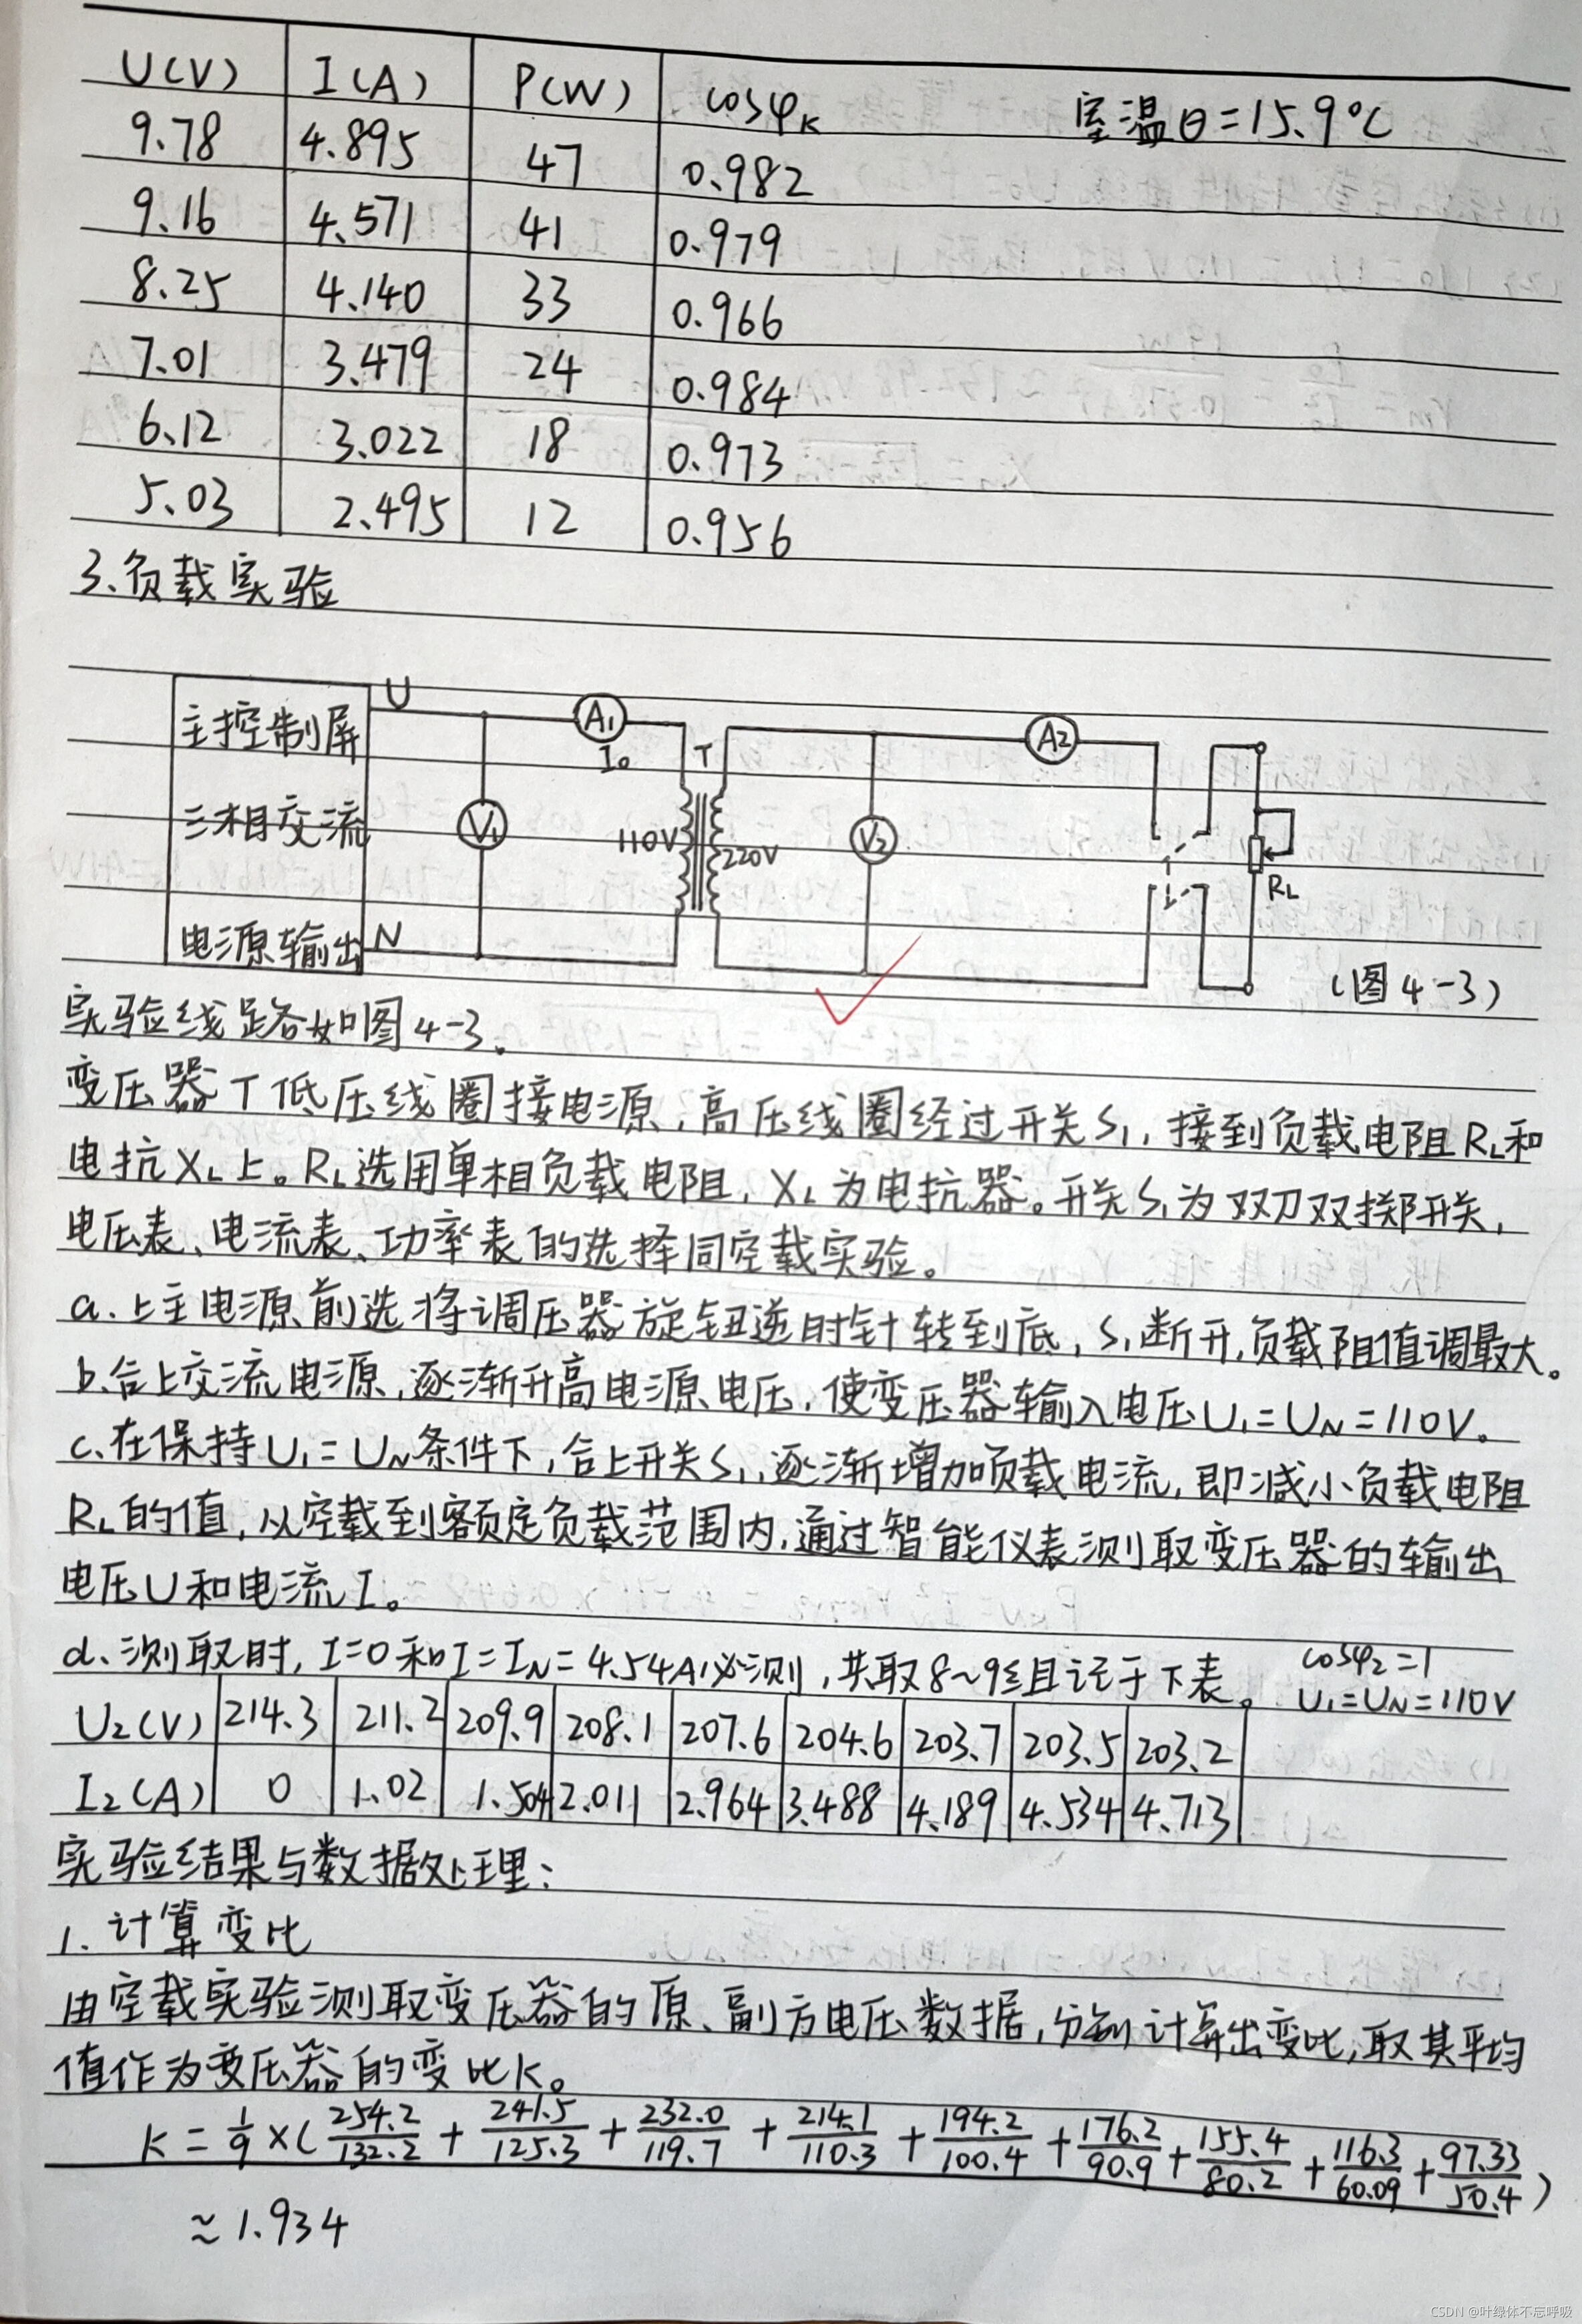 U(V) I(A) P(W) cosφK 室温θ=15.9℃
9.78 4.895 47 0.982
9.16 4.571 41 0.979
8.25 4.140 33 0.966
7.01 3.479 24 0.984
6.12 3.022 18 0.973
5.03 2.495 12 0.956
3.负载实验
主控制屏 U A1 I0 T A2
三相交流 V1 110V 220V V2 RL
电源输出 N (图4-3)
实验线路如图4-3。
变压器T低压线圈接电源,高压线圈经过开关S1,接到负载电阻RL和
电抗XL上。RL选用单相负载电阻,XL为电抗器。开关S1为双刀双掷开关,
电压表、电流表、功率表的选择同空载实验。
a.上主电源前选将调压器旋钮逆时针转到底,S1断开,负载阻值调最大。
b.合上交流电源,逐渐升高电源电压,使变压器输入电压U1=UN=110V。
c.在保持U1=UN条件下,合上开关S1,逐渐增加负载电流,即减小负载电阻
RL的值,从空载到额定负载范围内,通过智能仪表测取变压器的输出
电压U和电流I。
d.测取时,I=0和I=IN=4.54A必测,共取8~9组记于下表。 cosφ2=1
U1=UN=110V
U2(V) 214.3 211.2 209.9 208.1 207.6 204.6 203.7 203.5 203.2
I2(A) 0 1.02 1.504 2.011 2.964 3.488 4.189 4.534 4.713
实验结果与数据处理:
1.计算变比
由空载实验测取变压器的原、副方电压数据,分别计算出变比,取其平均
值作为变压器的变比K。
K=1/9×(254.2/132.2+241.5/125.3+232.0/119.7+214.1/110.3+194.2/100.4+176.2/90.9+155.4/80.2+116.3/60.09+97.33/50.4)
≈1.934
CSDN @叶绿体不忘呼吸